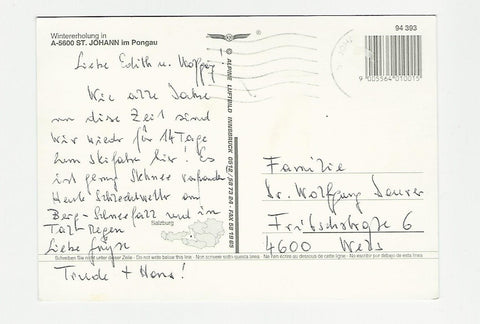 Wintererholung in
A-5600 ST. JOHANN im Pongau
Liebe Edith u. Wolfgang!
Wie alle Jahre
um diese Zeit sind
wir wieder für 14 Tage
zum Skifahren hier! Es
ist genug Schnee vorhanden
Heute Schlechtwetter am
Berg-Schneefall und im
Tal Regen
Liebe Grüße
Trude + Hans!
Salzburg
© ALPINE LUFTBILD INNSBRUCK
94 393
9 005364 010015
Familie
Dr. Wolfgang
Fritschstraße 6
4600 Wels
Schreiben Sie nicht unter dieser Zeile - Do not write below this line - Non scrivere sotto questa linea - Ne rien écrire au dessous de cette ligne - No escribir por debajo de esta linea